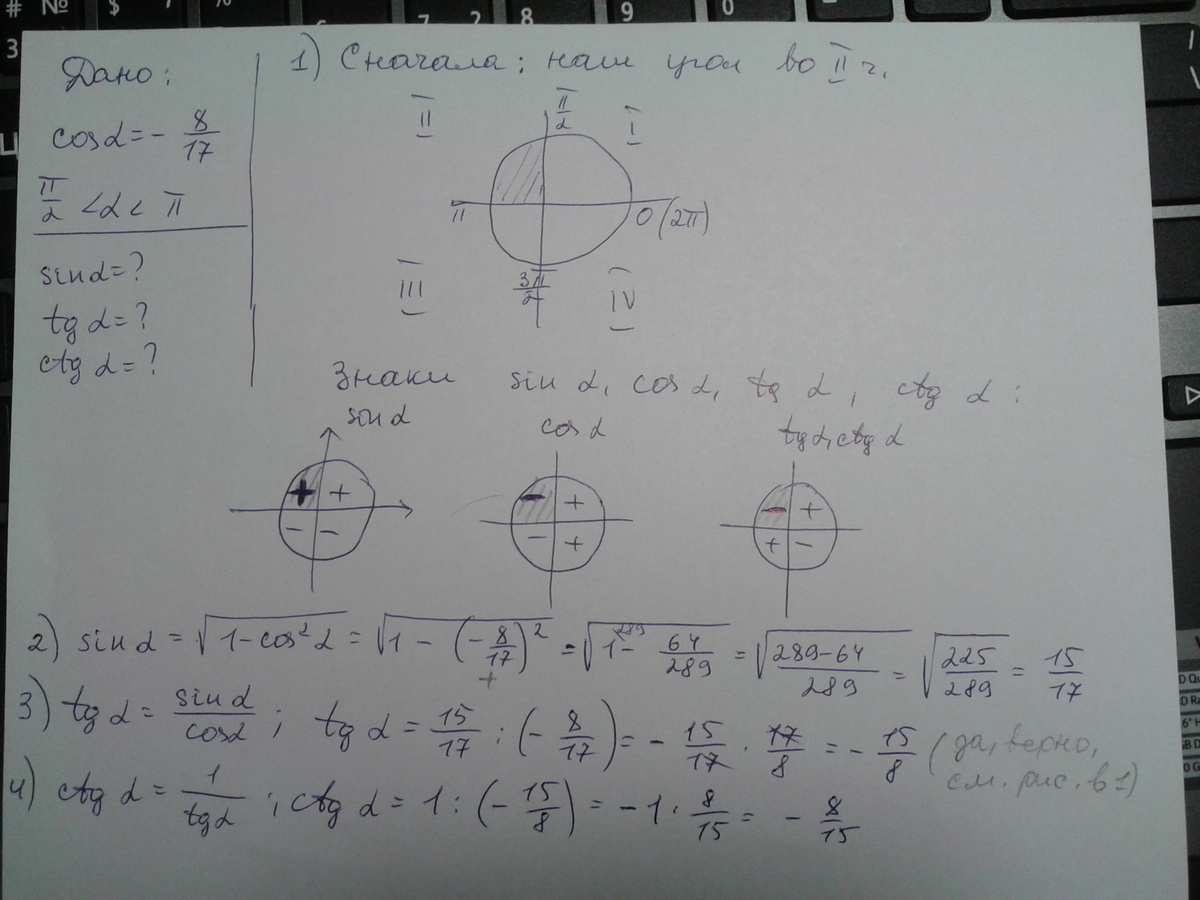 Дано:
cos α = - 8/17
π/2 < α < π
sin α = ?
tg α = ?
ctg α = ?
1) Сначала: наш угол во II ч.
II
π/2
I
π
0 (2π)
III
3π/2
IV
Знаки sin α, cos α, tg α, ctg α :
sin α
cos α
tg α, ctg α
+ +
- -
- +
- +
- +
+ -
2) sin α = √(1-cos² α) = √(1 - (-8/17)²) = √(1 - 64/289) = √((289-64)/289) = √(225/289) = 15/17
3) tg α = sin α/cos α ; tg α = 15/17 : (- 8/17) = - 15/17 · 17/8 = - 15/8 (да, верно,
см. рис. в 1)
4) ctg α = 1/tg α ; ctg α = 1 : (- 15/8) = -1 · 8/15 = - 8/15